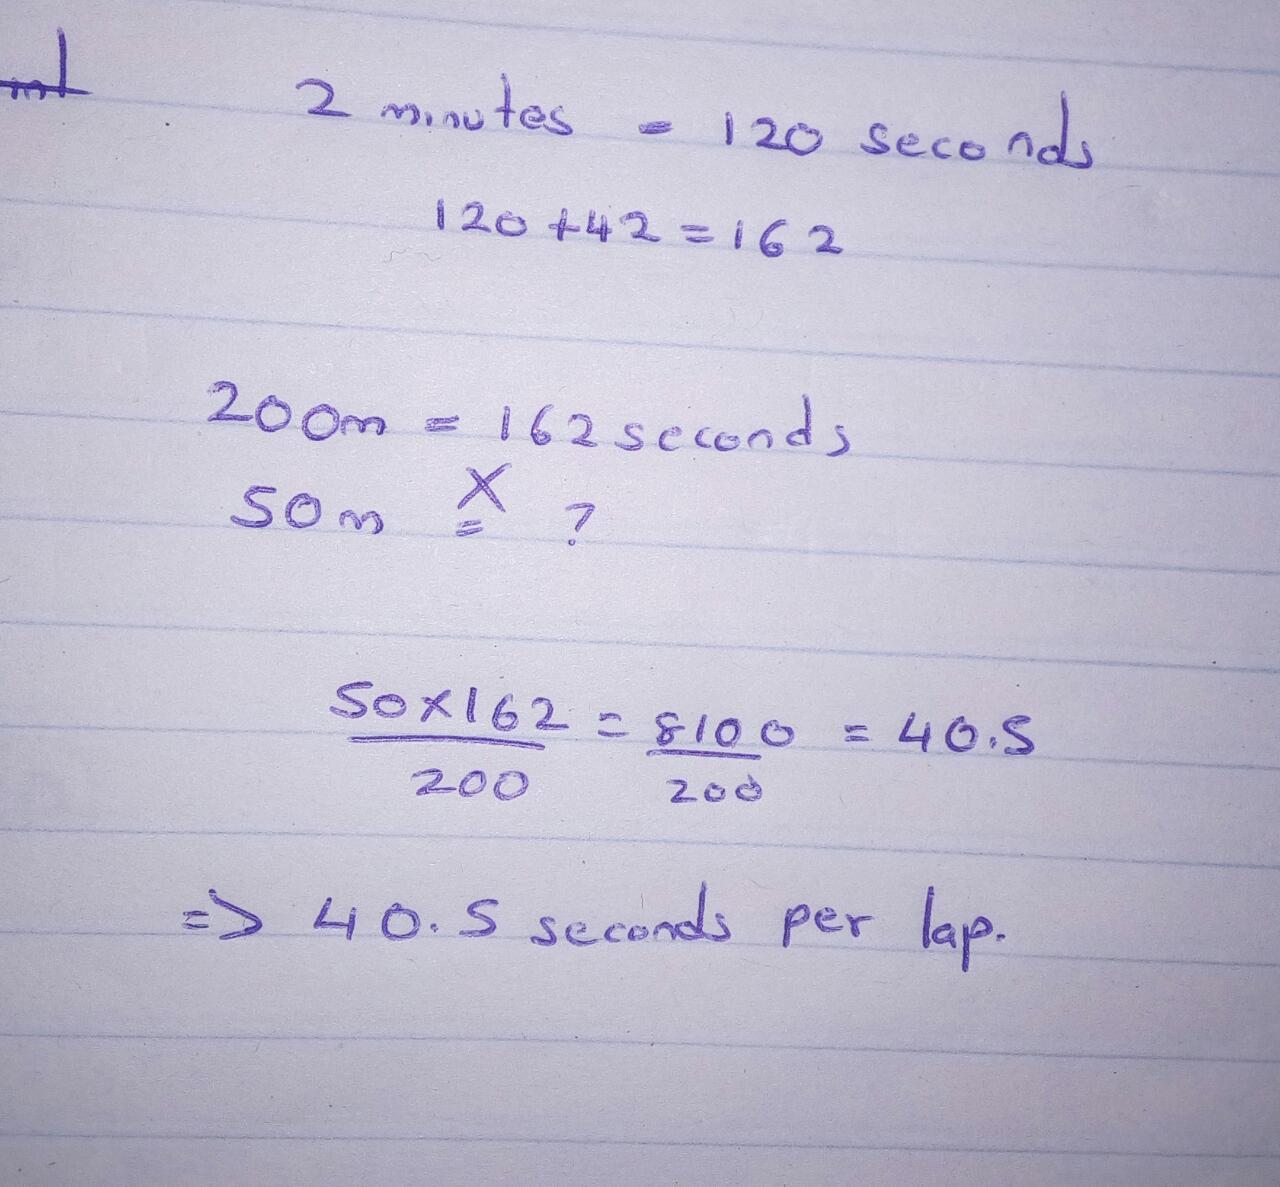 2 minutes = 120 seconds
120 + 42 = 162
200m = 162 seconds
X
50m = ?
50 x 162 = 8100 = 40.5
200 200
=> 40.5 seconds per lap.